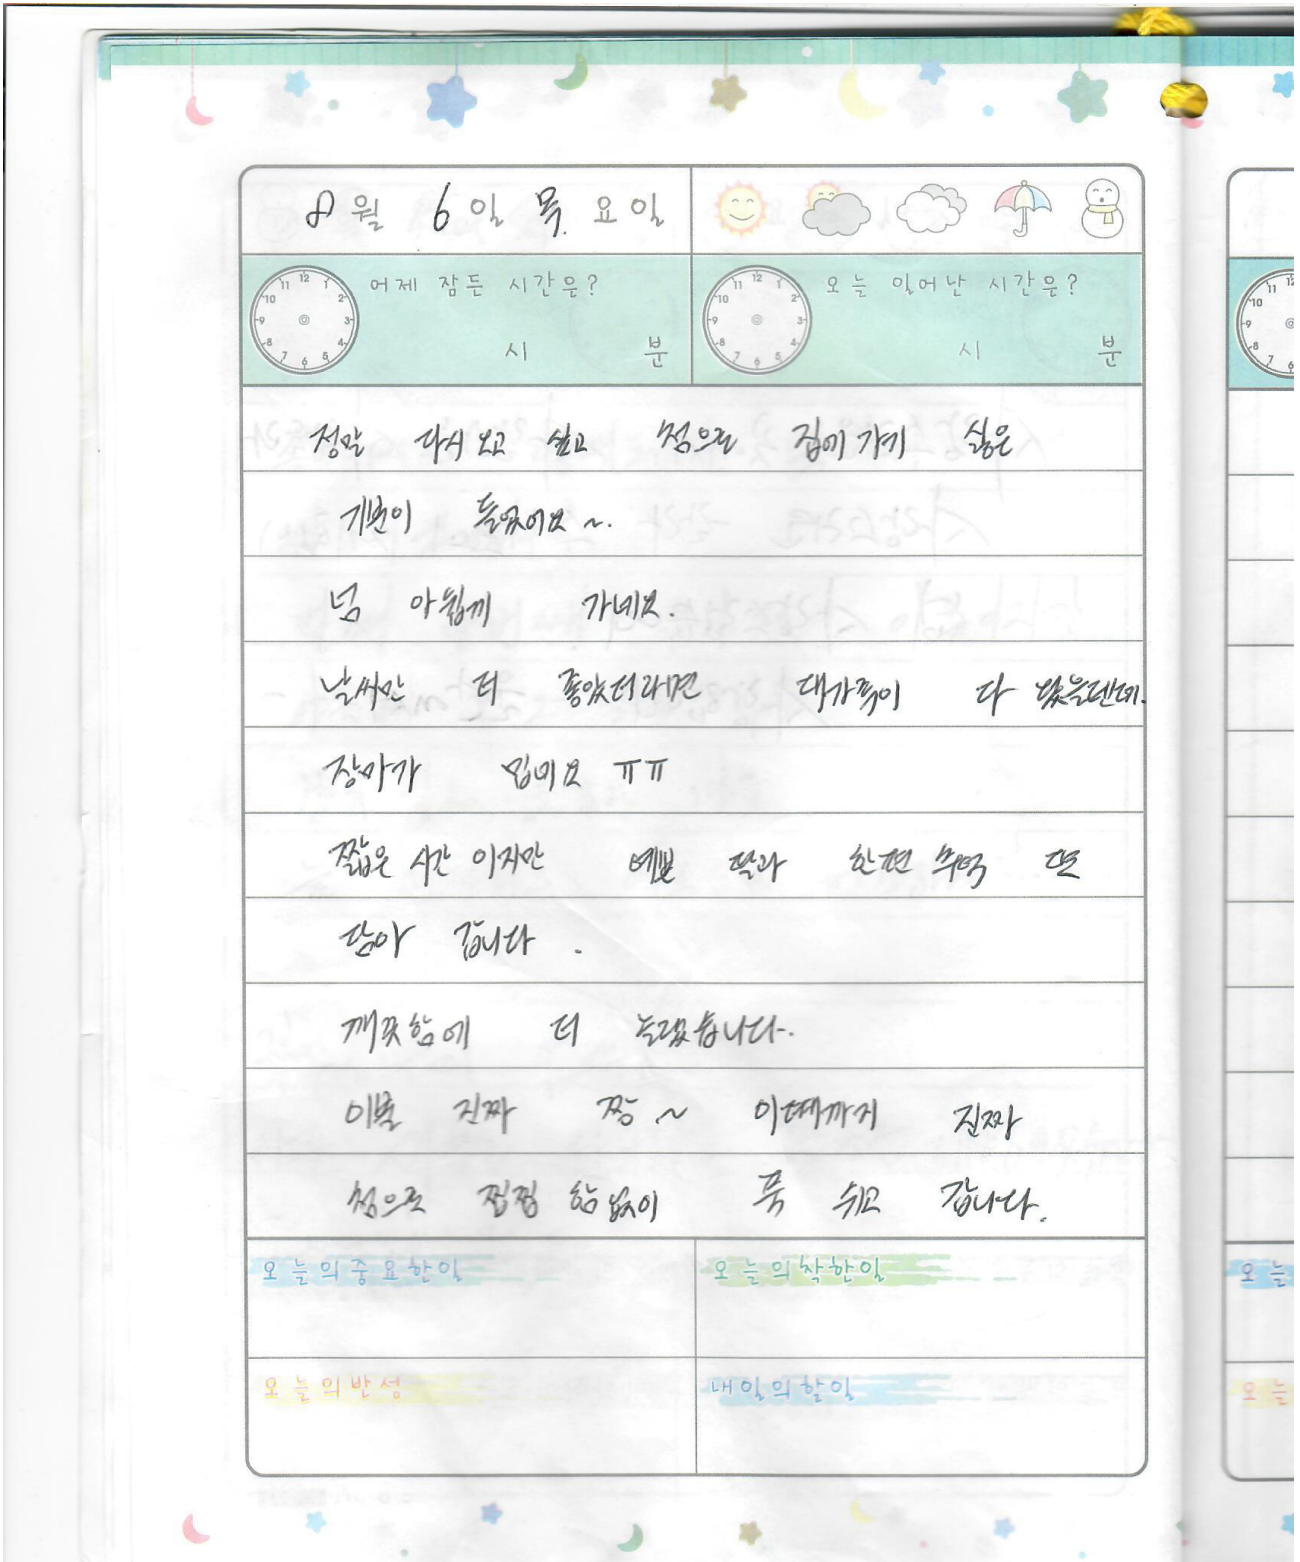 8월 6일 목요일
어제 잠든 시간은?
시 분
오늘 일어난 시간은?
시 분
정말 다시 보고 싶고 첨으로 집에 가기 싫은
기분이 들었어요~.
넘 아쉽게 가네요.
날씨만 더 좋았더라면 대가족이 다 왔을텐데.
장마가 밉네요 ㅠㅠ
짧은 시간 이지만 예쁜 딸과 한편 추억 또
담아 갑니다.
깨끗함에 더 놀랐습니다.
이불 진짜 짱~ 이때까지 진짜
첨으로 찝찝 함 없이 푹 쉬고 갑니다.
오늘의중요한일
오늘의착한일
오늘의반성
내일의할일
오늘
오늘